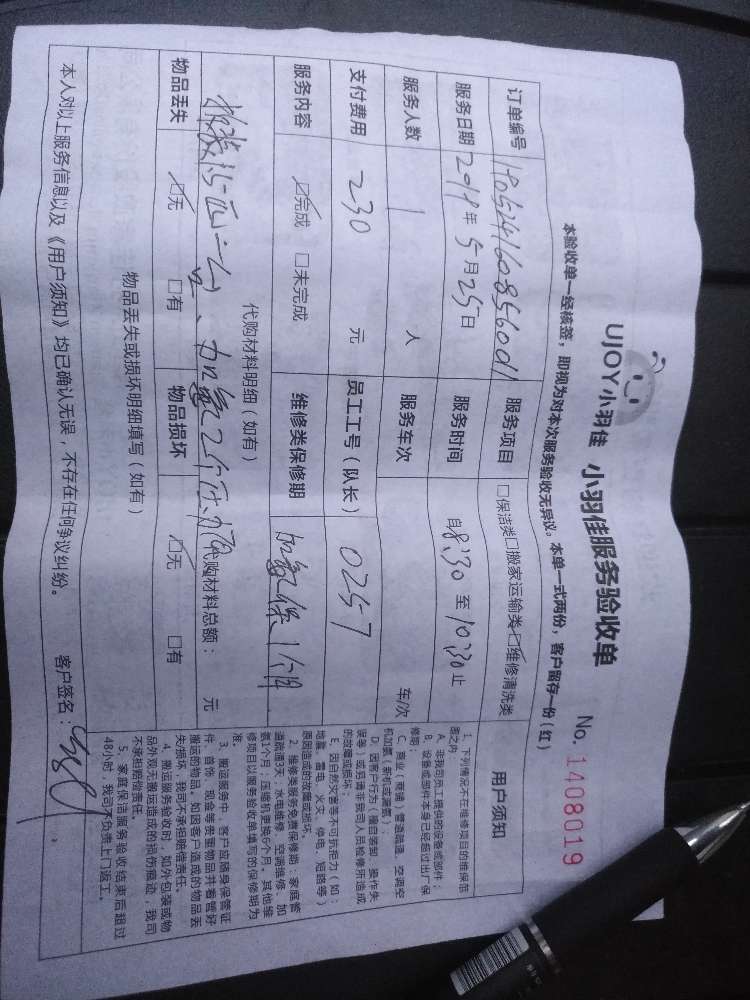 UJOY小羽佳 小羽佳服务验收单
No. 1408019
本验收单一经核签，即视为对本次服务验收无异议。本单一式两份，客户留存一份（红）
订单编号
服务项目 □保洁类□搬家运输类☑维修清洗类
服务日期 2019年5月25日 服务时间 自8:30至10:30止
服务人数 1 人 服务车次 车/次
支付费用 230 元 员工工号（队长） 0257
服务内容 ☑完成 □未完成 维修类保修期 加氨保1个月
代购材料明细（如有）
代购材料总额： 元
物品丢失 ☑无 □有 物品损坏 ☑无 □有
物品丢失或损坏明细填写（如有）
本人对以上服务信息以及《用户须知》均已确认无误，不存在任何争议纠纷。 客户签名：
用户须知
1、下列情况不在维修项目的维保范
围之内
A、非我司员工提供的设备或部件；
B、设备或部件本身已经超过出厂保
修期；
C、商业（商铺）管道疏通、空调空
机加氨（新机或漏氨）；
D、因客户行为（擅自装卸、操作失
误等）或另请非我司人员检修所造成
的故障或损坏；
E、因自然灾害等不可抗拒力（如：
地震、雷电、火灾、停电、短路等）
原因造成的故障或损坏。
2、维修类服务免费保修期：家庭管
道疏通3天，水电维修、空调维修、加
氨1个月；压缩机更换6个月。其他维
修项目以服务验收单填写的保修期为
准。
3、搬运服务中，客户应随身保管证
件、首饰、现金等贵重物品并看管好
搬运的物品。如因客户造成的物品丢
失/损坏，我司不承担赔偿责任。
4、搬运服务验收时，如外包装或物
品外观无搬运造成的损伤痕迹，我司
不承担赔偿责任。
5、家庭保洁服务验收结束后超过
48小时，我司不负责上门返工。